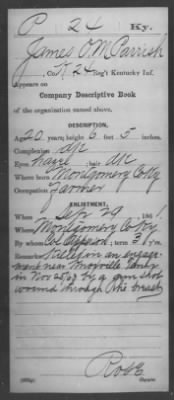 P 24 Ky.
James O. M. Parrish
, Co. K, 24 Reg't Kentucky Inf.
Appears on
Company Descriptive Book
of the organization named above.
DESCRIPTION.
Age 20 years; height 6 feet 5 inches.
Complexion dk
Eyes hazel ; hair dk
Where born Montgomery Co Ky
Occupation Farmer
ENLISTMENT.
When Sept 29, 1861.
Where Montgomery Co Ky
By whom Col ; term 3 y'rs.
Remarks: Killed in an engage
ment near Knoxville Tenn
in Nov 25/63 by a gun shot
wound through the breast
Copyist.